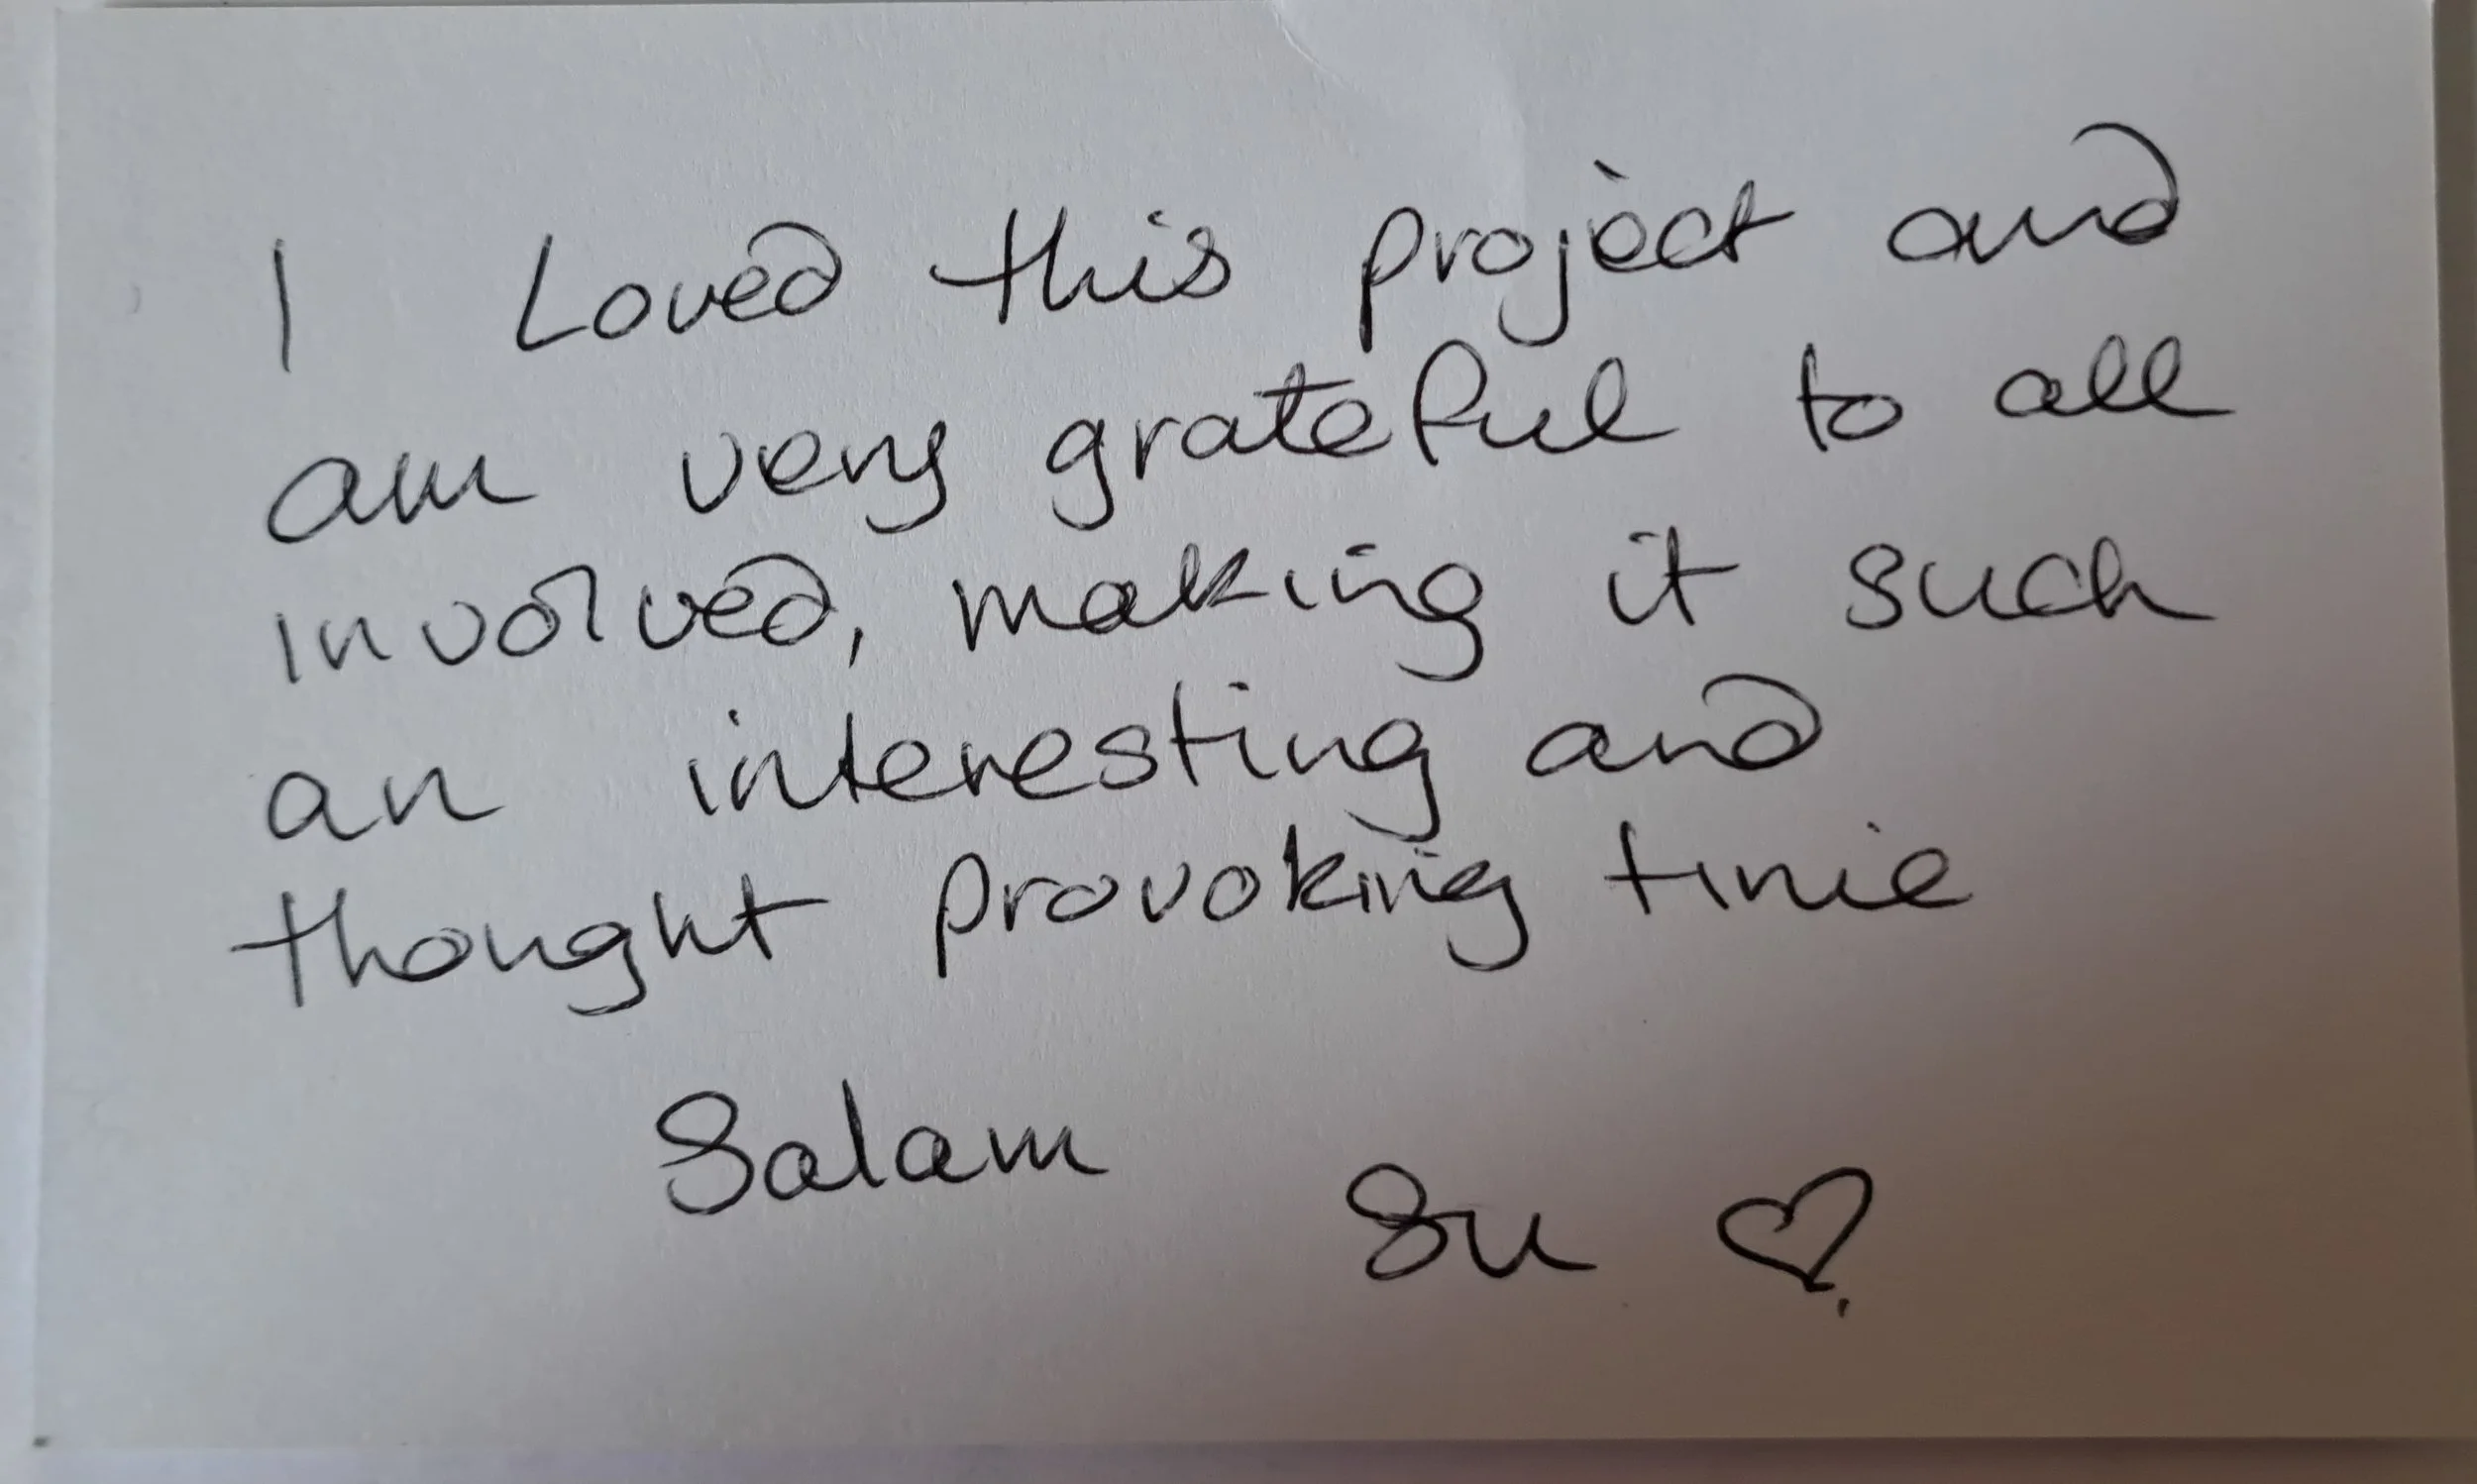 I Loved this project and
am very grateful to all
involved, making it such
an interesting and
thought provoking time
Salam
Su ♡